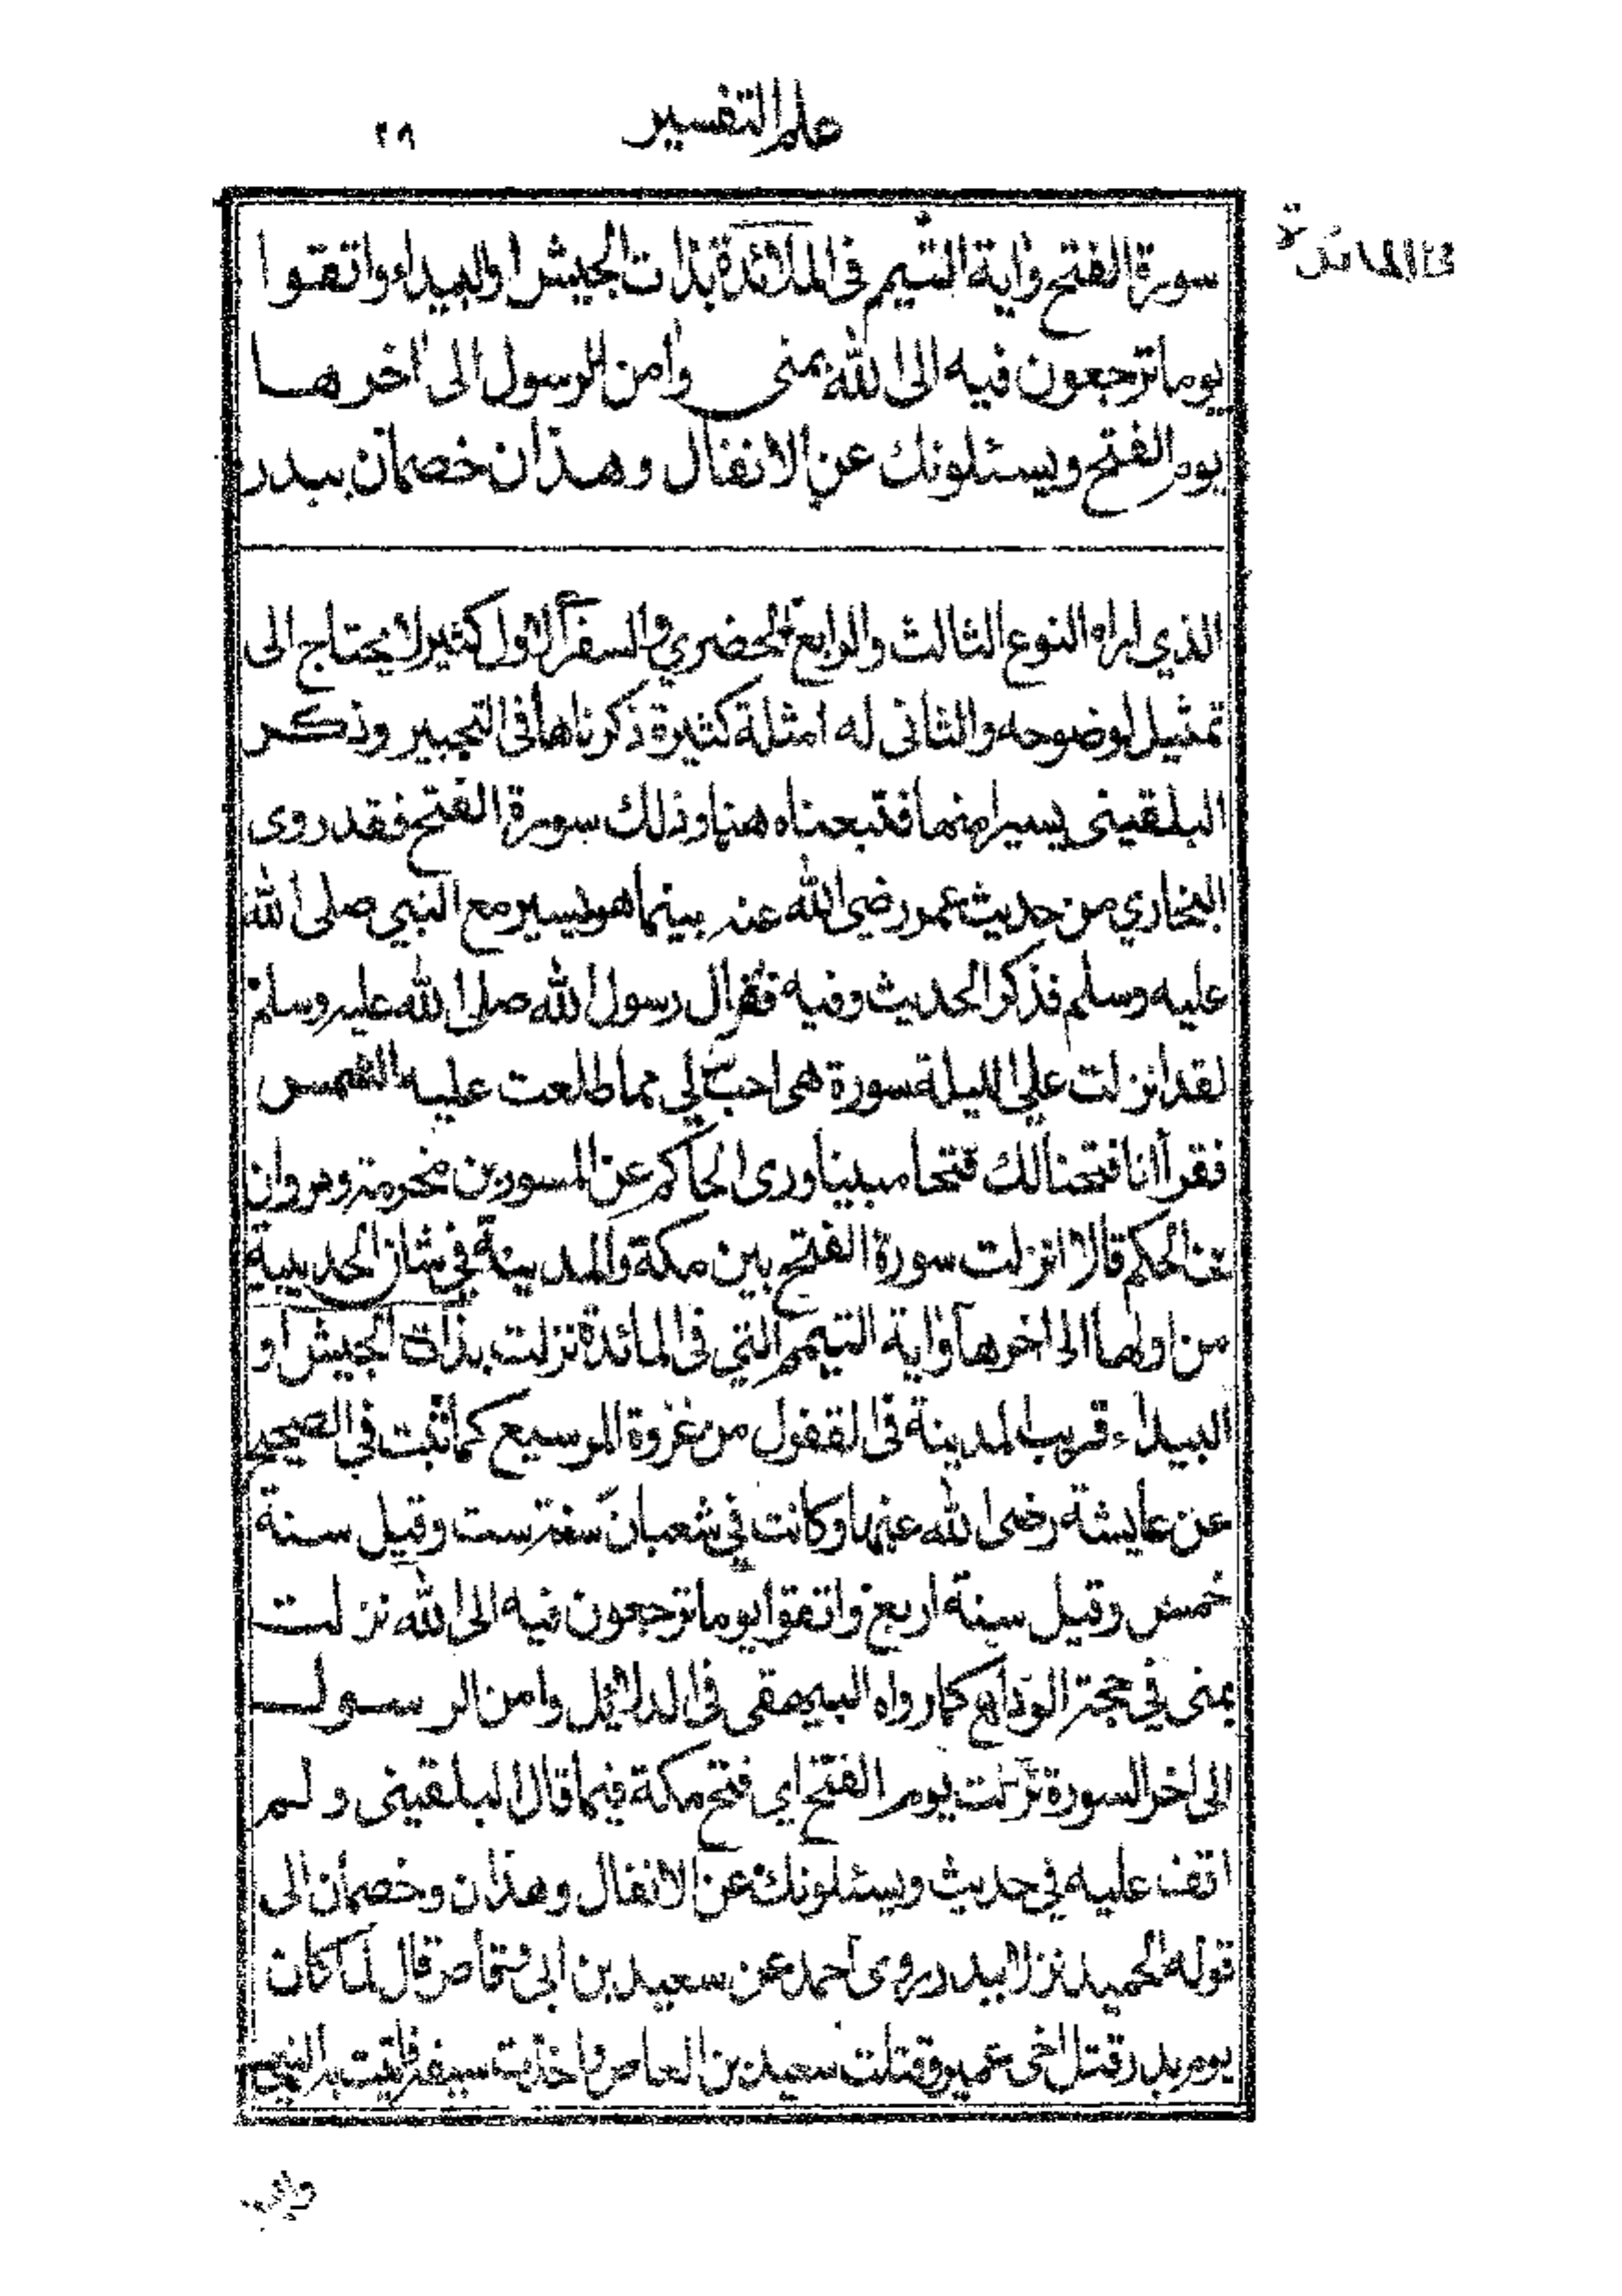 علم التفسير
٢٩
سورة الفتح واية التيمم فى المائدة بذات الجيش او البيداء واتقوا
فى المائدة
يوما ترجعون فيه الى الله بمنى وامن الرسول الى اخرها
يوم الفتح ويسئلونك عن الانفال وهذان خصمان ببدر
الذي اراه النوع الثالث والرابع الحضري والسفر الاول كثير لا يحتاج الى
تمثيل لوضوحه والثانى له امثلة كثيرة ذكرناها فى التحبير وذكر
البلقينى يسيرا منها فتبعناه هنا وذلك سورة الفتح فقد روى
البخاري من حديث عمر رضي الله عنه بينما هو يسير مع النبي صلى الله
عليه وسلم فذكر الحديث وفيه فقال رسول الله صلى الله عليه وسلم
لقد انزلت علي الليلة سورة هى احب الي مما طلعت عليه الشمس
فقرأ انا فتحنا لك فتحا مبينا وروى الحاكم عن المسور بن مخرمة ومروان
بن الحكم قالا انزلت سورة الفتح بين مكة والمدينة في شان الحديبية
من اولها الى اخرها واية التيمم التي فى المائدة نزلت بذات الجيش او
البيداء قريب المدينة فى القفول من غزوة المريسيع كما ثبت في الصحيح
عن عايشة رضى الله عنها وكانت في شعبان سنة ست وقيل سنة
خمس وقيل سنة اربع واتقوا يوما ترجعون فيه الى الله نزلت
بمنى في حجة الوداع كما رواه البيهقى فى الدلائل وامن الرسول
الى اخر السورة نزلت يوم الفتح اي فتح مكة فيما قال البلقينى ولم
اقف عليه في حديث ويسئلونك عن الانفال وهذان وخصمان الى
قوله الحميد نزلا ببدر روى احمد عن سعيد بن ابى وقاص قال لما كان
يوم بدر قتل اخى عمير وقتلت سعيد بن العاص واخذت سيفه فاتيت به النبي